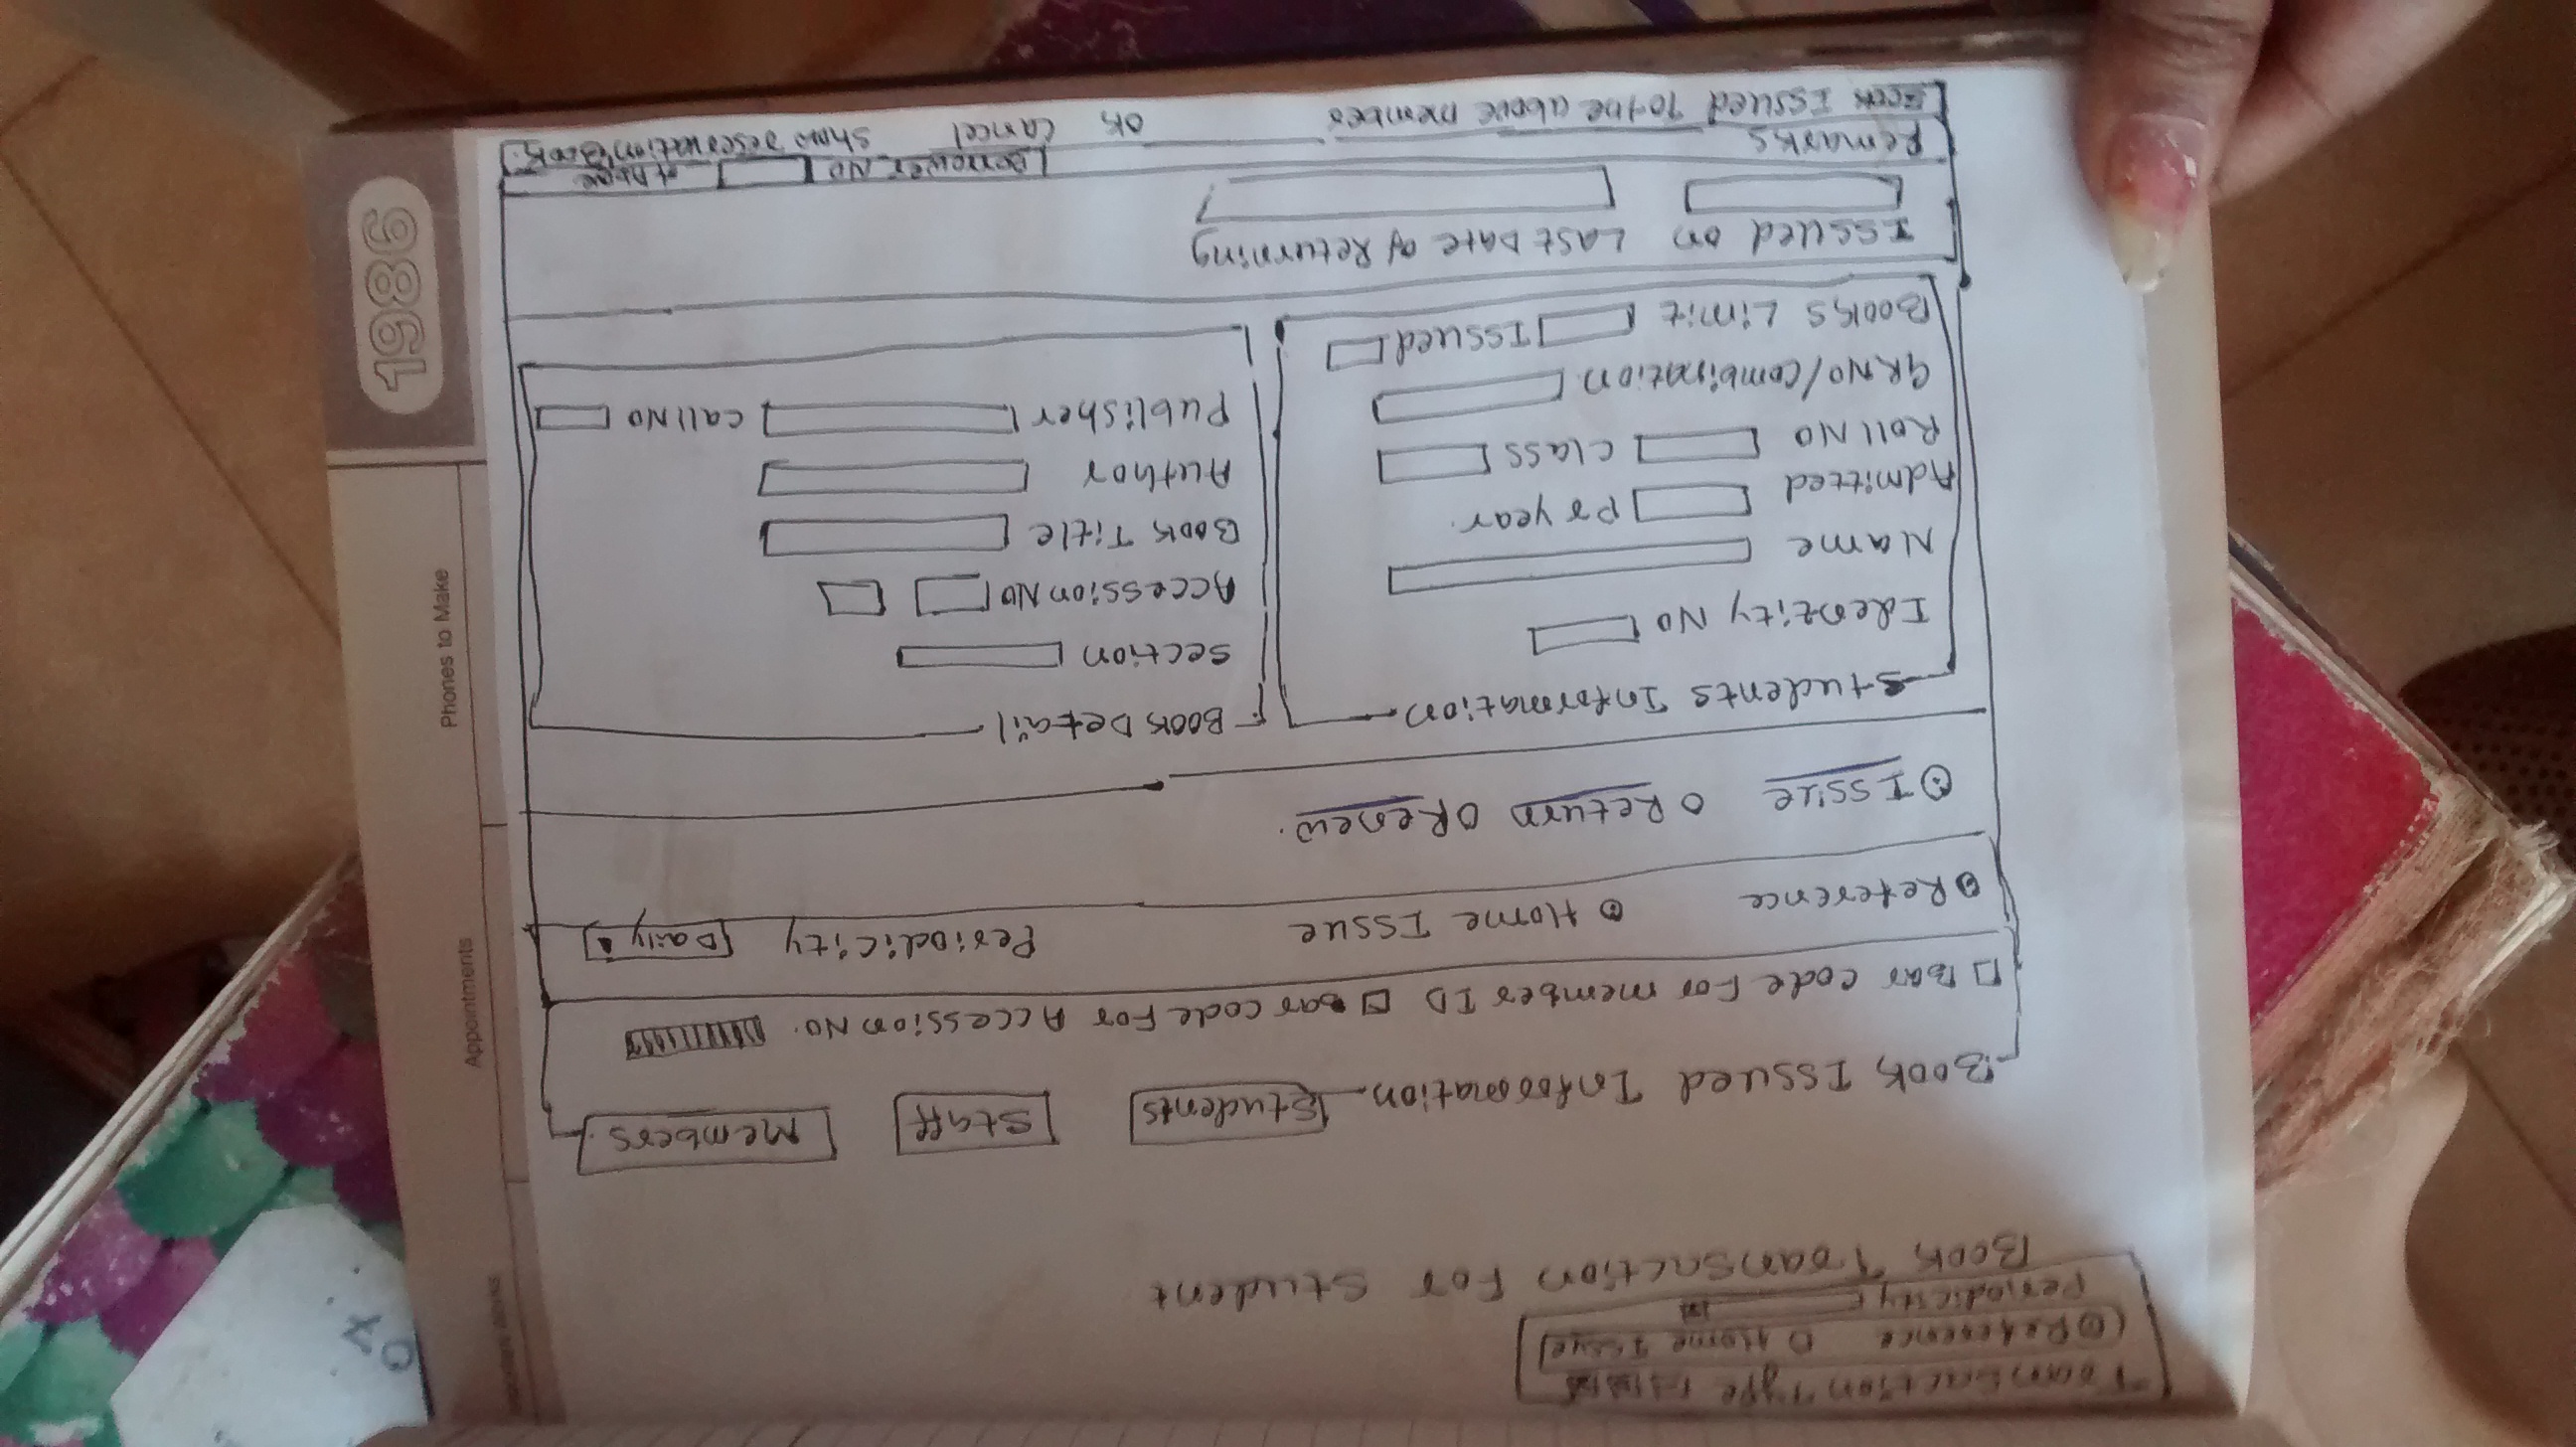 Transaction Type
Reference Home Issue
Periodicity
Book Transaction For Student
Book Issued Information Students Staff Members
Bar code For member ID Bar code For Accession No.
Reference Home Issue Periodicity Daily
Issue Return Renew.
Students Information
Identity No
Name
Admitted Pr year.
Roll NO class
GRNO/combination
Books Limit Issued
Book Detail
Section
Accession No
Book Title
Author
Publisher call No
Issued on Last Date of Returning
Remarks Borrower NO
Book Issued To the above member OK cancel show reservation Book.
Appointments
Phones to Make
1986